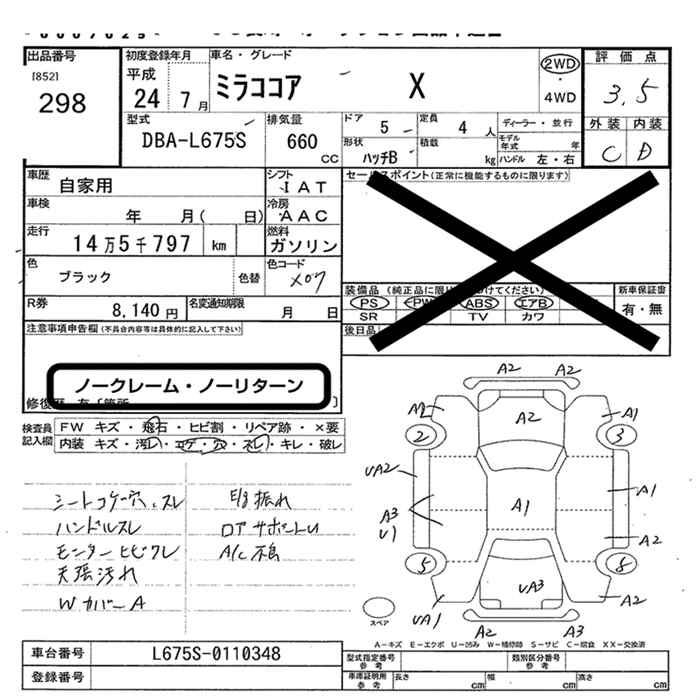 出品番号 初度登録年月 車名・グレード 評価点
[852] 平成 ミラココア X 2WD・4WD 3.5
298 24 7月
外装 内装
C D
型式 排気量 ドア 定員 ディーラー・並行
DBA-L675S 660 CC 5 4人 モデル年式 年
形状 積載 kg ハンドル 左・右
ハッチB
車歴 自家用 シフト IAT セールスポイント(正常に機能するものに限ります)
車検 年 月( 日) 冷房 AAC
走行 14万5千797 km 燃料 ガソリン
色 ブラック 色替 色コード X07
装備品 (純正品に限り けてください) 新車保証書
PS PW ABS エアB 有・無
SR TV カワ
R券 8,140円 名変通知期限 月 日
後日品
注意事項申告欄(不具合内容等は具体的に記入して下さい)
ノークレーム・ノーリターン
検査員記入欄 FW キズ・飛石・ヒビ割・リペア跡・×要
内装 キズ・汚レ・コゲ・穴・スレ・キレ・破レ
シートコゲ穴、スレ E/g振れ
ハンドルスレ
天張汚れ
WカバーA
A2 A2
A2 A2 A1
2 3
UA2 A1 A1
A3
U1 A2
5 8
UA3
UA1 A2
スペア A2 A3
A-キズ E-エクボ U-凹み W-補修跡 S-サビ C-腐食 XX-交換済
車台番号 L675S-0110348 型式指定番号 参考 類別区分番号 参考
登録番号 車庫証明用 参考 長さ cm 幅 cm 高さ cm